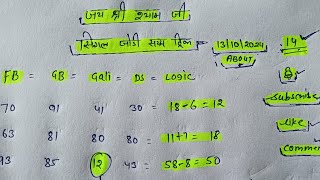 जय श्री श्याम जी
सिंगल जोडी सम ट्रिक 13/10/2024 14
ABOUT
FB = GB = Gali = DS = Logic
Subscribe
70 91 41 30 = 18-6 = 12
Like
63 81 80 80 = 11+7 = 18
Comment
93 85 12 43 = 58-8 = 50